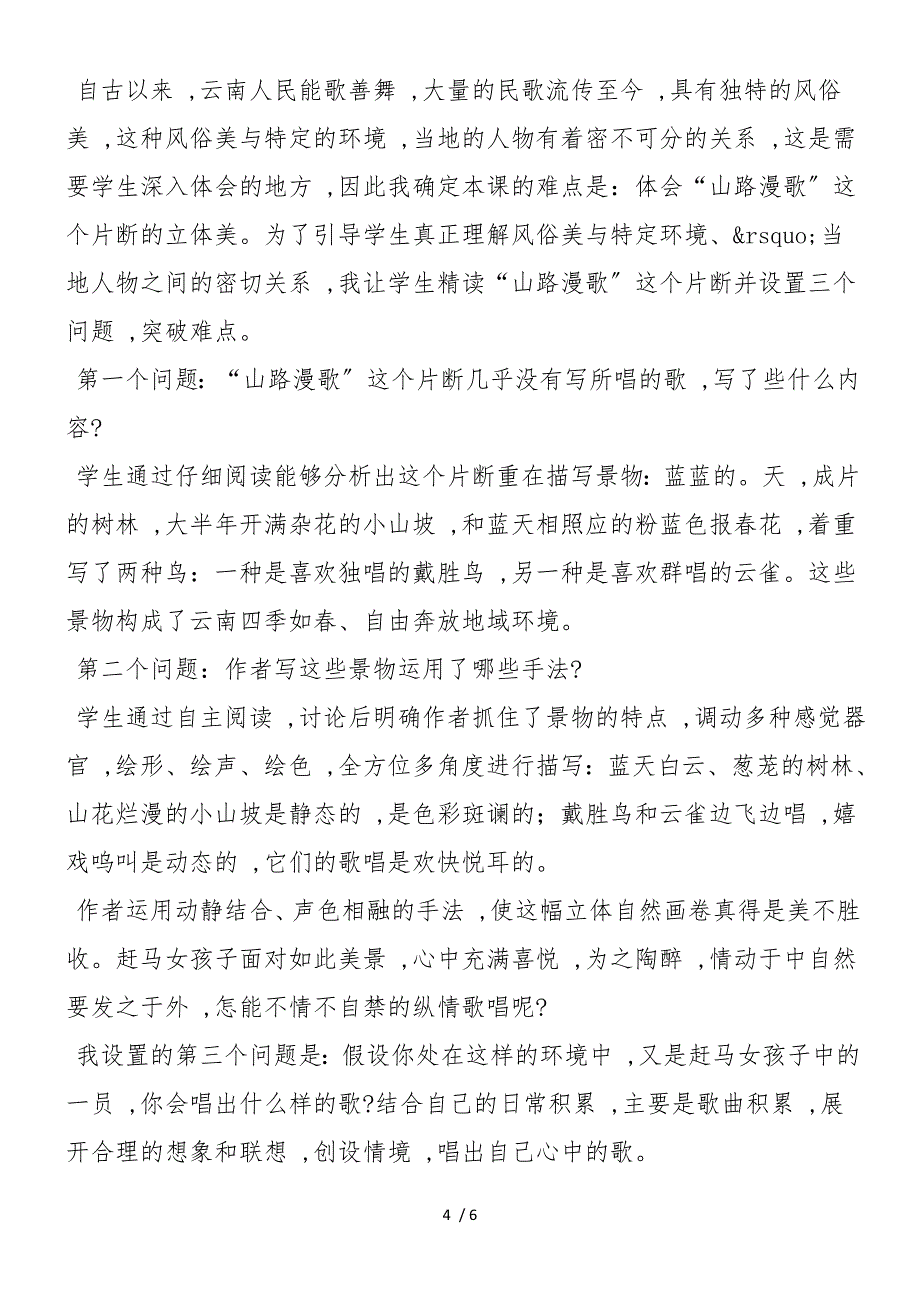 自古以来 ,云南人民能歌善舞 ,大量的民歌流传至今 ,具有独特的风俗
美 ,这种风俗美与特定的环境 ,当地的人物有着密不可分的关系 ,这是需
要学生深入体会的地方 ,因此我确定本课的难点是: 体会“山路漫歌〞这
个片断的立体美。为了引导学生真正理解风俗美与特定环境、&rsquo;当
地人物之间的密切关系 ,我让学生精读“山路漫歌〞这个片断并设置三个
问题 ,突破难点。
第一个问题: “山路漫歌〞这个片断几乎没有写所唱的歌 ,写了些什么内
容?
学生通过仔细阅读能够分析出这个片断重在描写景物: 蓝蓝的。天 ,成片
的树林 ,大半年开满杂花的小山坡 ,和蓝天相照应的粉蓝色报春花 ,着重
写了两种鸟: 一种是喜欢独唱的戴胜鸟 ,另一种是喜欢群唱的云雀。这些
景物构成了云南四季如春、自由奔放地域环境。
第二个问题: 作者写这些景物运用了哪些手法?
学生通过自主阅读 ,讨论后明确作者抓住了景物的特点 ,调动多种感觉器
官 ,绘形、绘声、绘色 ,全方位多角度进行描写: 蓝天白云、葱茏的树林、
山花烂漫的小山坡是静态的 ,是色彩斑谰的; 戴胜鸟和云雀边飞边唱 ,嬉
戏呜叫是动态的 ,它们的歌唱是欢快悦耳的。
作者运用动静结合、声色相融的手法 ,使这幅立体自然画卷真得是美不胜
收。赶马女孩子面对如此美景 ,心中充满喜悦 ,为之陶醉 ,情动于中自然
要发之于外 ,怎能不情不自禁的纵情歌唱呢?
我设置的第三个问题是: 假设你处在这样的环境中 ,又是赶马女孩子中的
一员 ,你会唱出什么样的歌?结合自己的日常积累 ,主要是歌曲积累 ,展
开合理的想象和联想 ,创设情境 ,唱出自己心中的歌。
4 / 6